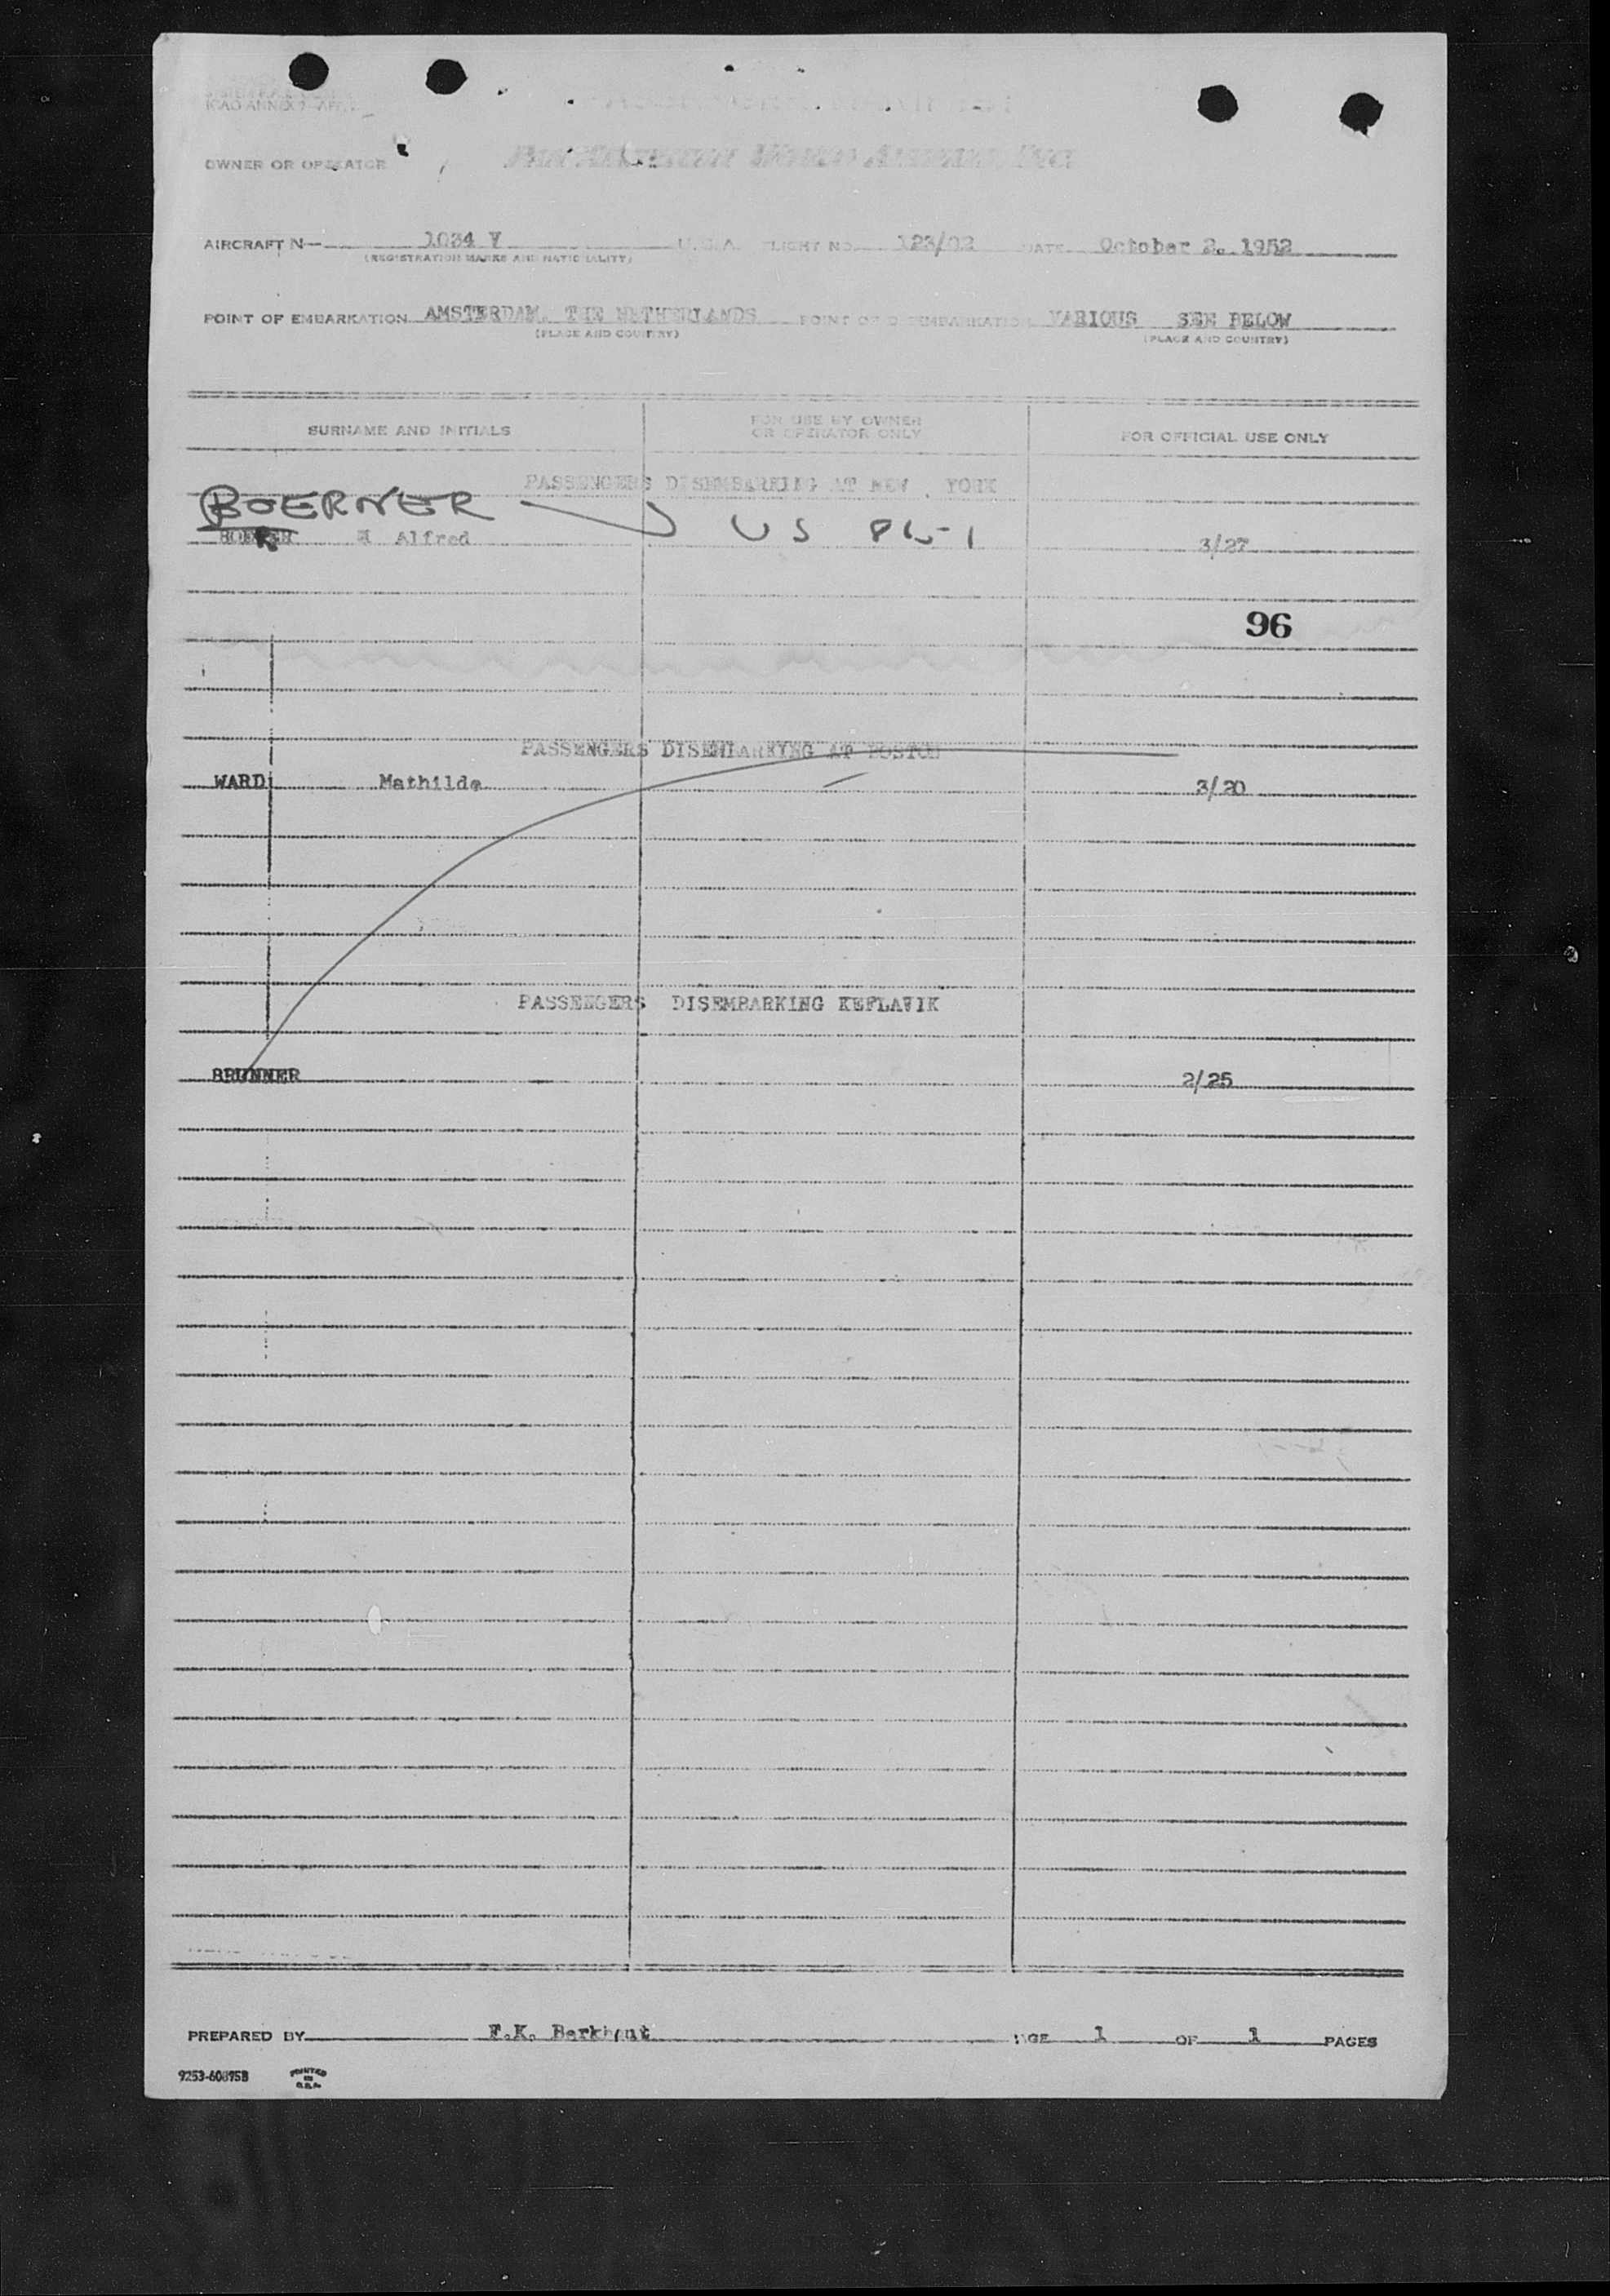 ICAO ANNEX 9-APP.
OWNER OR OPERATOR PAN AMERICAN WORLD AIRWAYS, INC.
AIRCRAFT N— 1034 V U.S.A. FLIGHT NO. 123/02 DATE October 2. 1952
(REGISTRATION MARKS AND NATIONALITY)
POINT OF EMBARKATION AMSTERDAM, THE NETHERLANDS POINT OF DISEMBARKATION VARIOUS SEE BELOW
(PLACE AND COUNTRY) (PLACE AND COUNTRY)
SURNAME AND INITIALS FOR USE BY OWNER OR OPERATOR ONLY FOR OFFICIAL USE ONLY
PASSENGERS DISEMBARKING AT NEW YORK
BOERNER US
Alfred 3/27
96
PASSENGERS DISEMBARKING AT BOSTON
WARD Mathilde 3/20
PASSENGERS DISEMBARKING KEFLAVIK
BRUNNER 2/25
PREPARED BY F.K. Berkhout PAGE 1 OF 1 PAGES
9253-60895B PRINTED IN U.S.A.